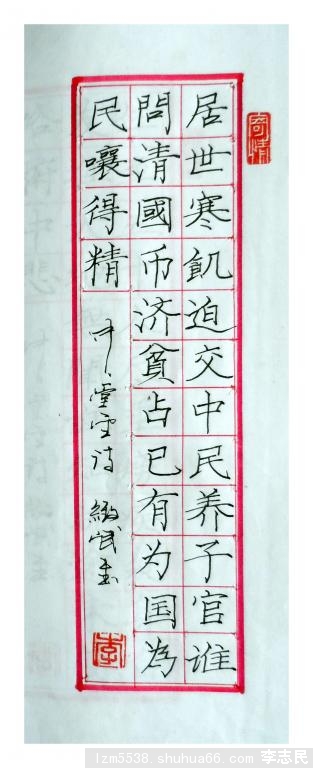 奇情
居世寒飢迫交中民养子官谁
問清國币济貧占已有为国為
民嚷得精
堂雪诗
李
lzm5538.shuhua66.com 李志民